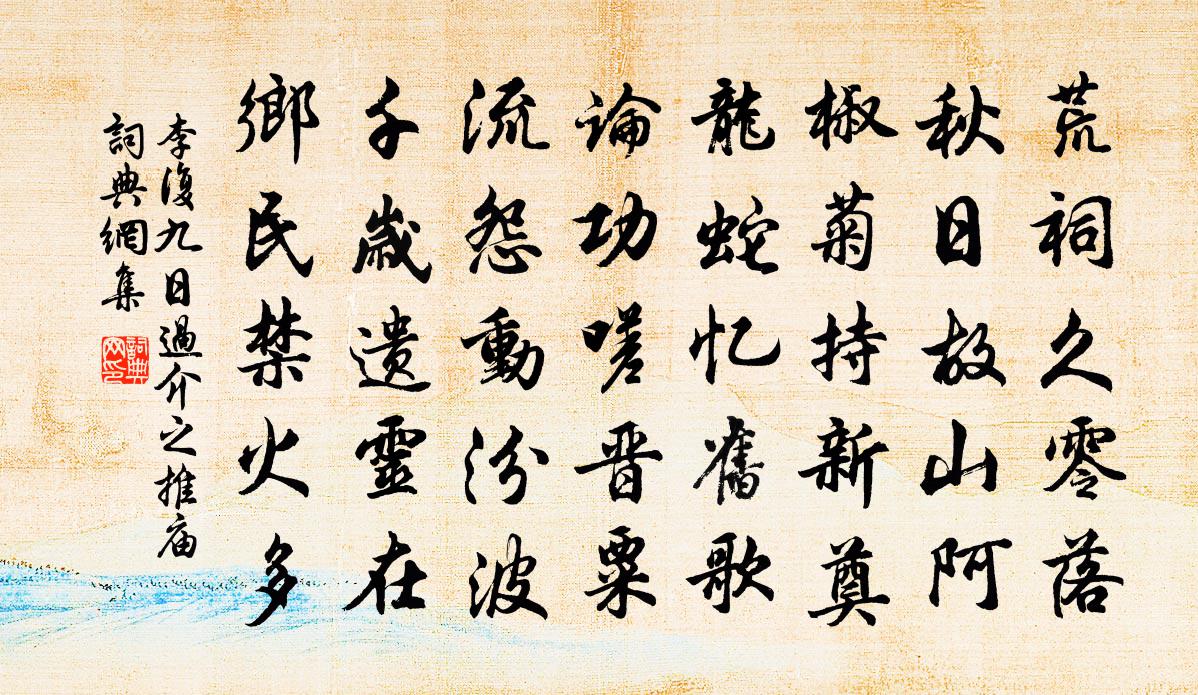 荒祠久零落
秋日故山阿
椒菊持新奠
龍蛇忆舊歌
論功嗟晋粟
流怨動汾波
千歲遺靈在
鄉民禁火多
李復九日過介之推庙
詞典網集